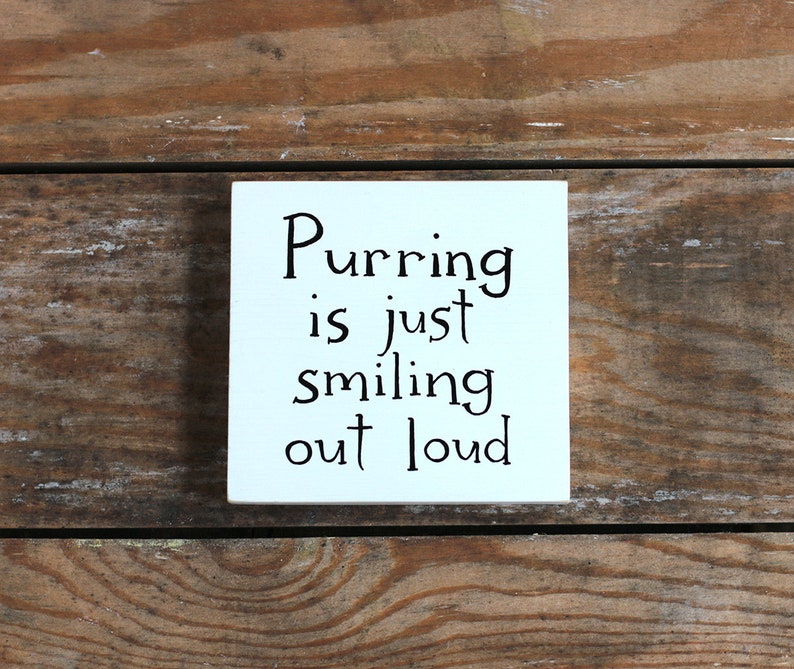 Purring
is just
smiling
out loud